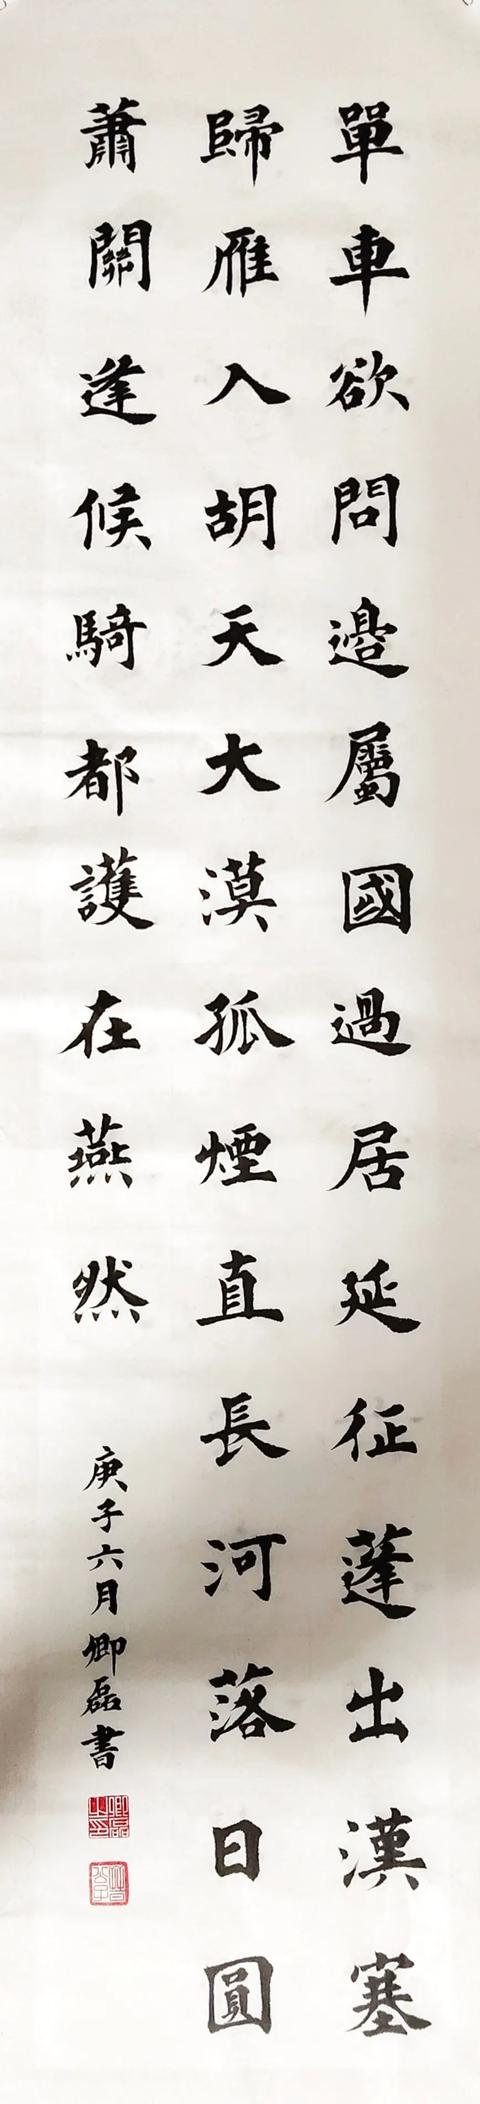 單車欲問邊屬國過居延征蓬出漢塞
歸雁入胡天大漠孤煙直長河落日圓
蕭關逢候騎都護在燕然
庚子六月卿磊書